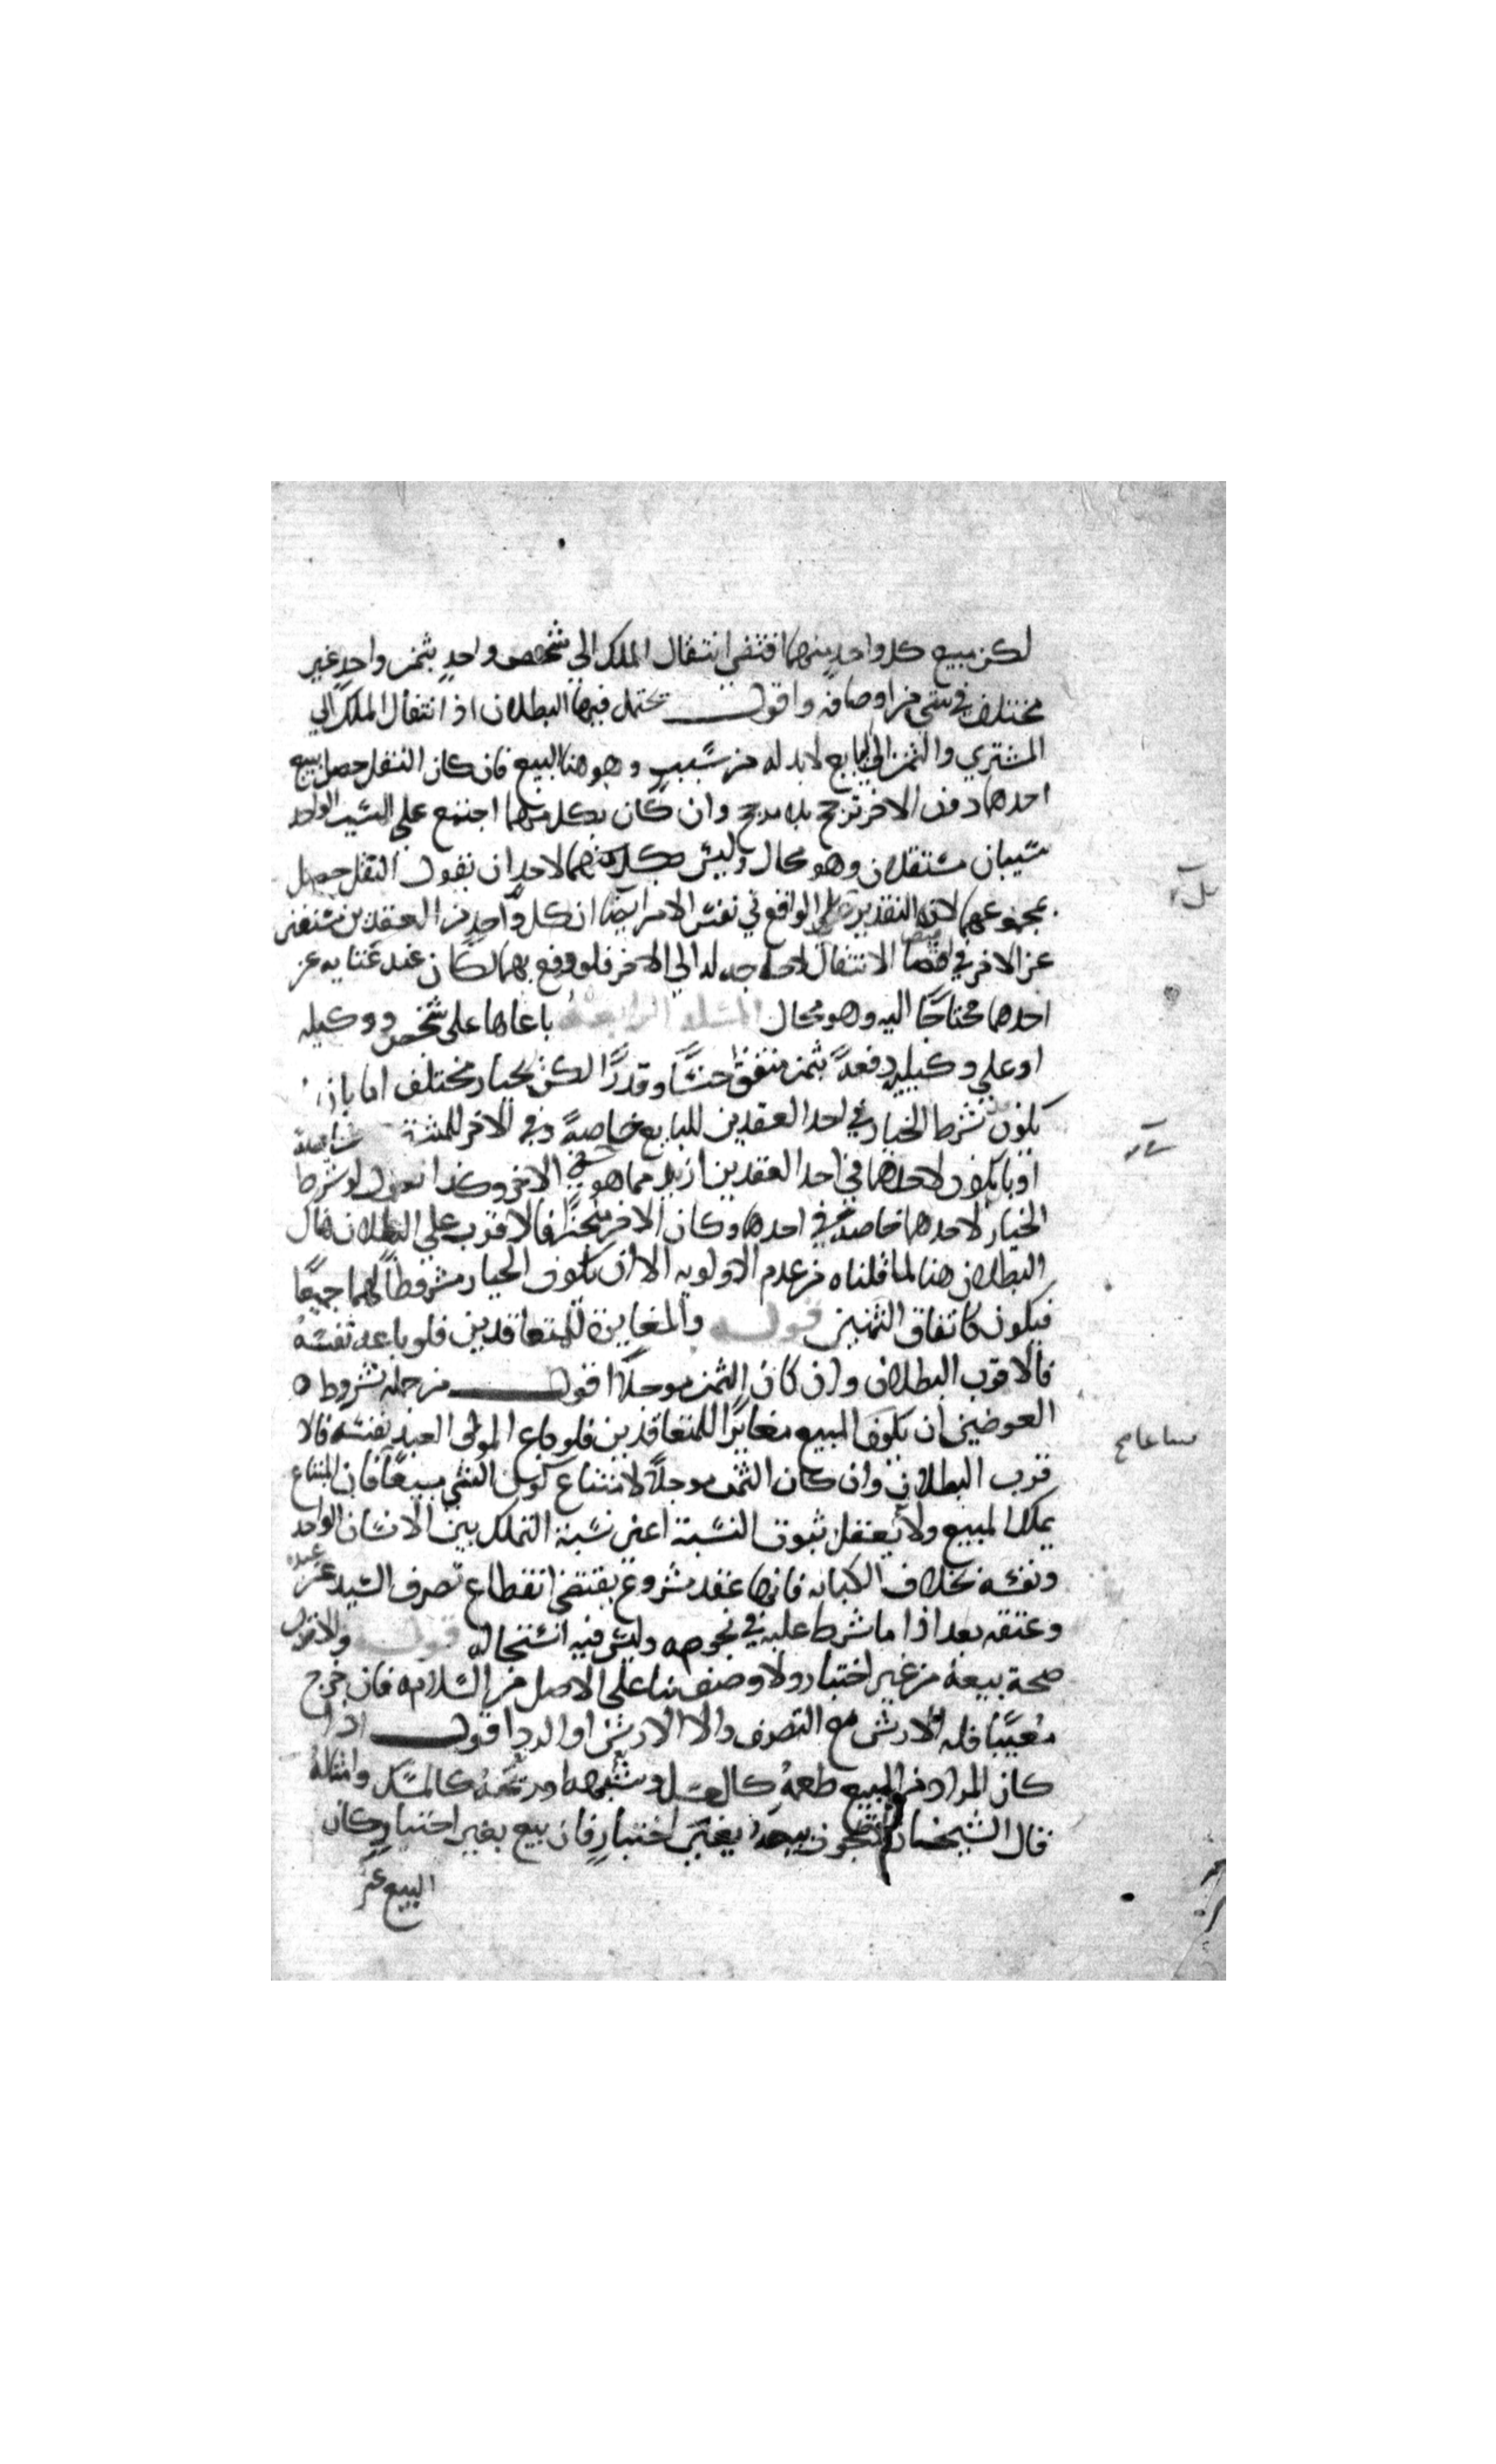 لكن بيع كل واحد منهما اقتضى انتقال الملك الى شخص واحدٍ بثمن واحدٍ غير
مختلف في شي من اوصافه واقول يحتمل فيها البطلان اذ انتقال الملك الي
المشتري والثمن الى البايع لابد له من سببٍ وهو هنا البيع فان كان النقل حصل ببيع
احدهما دون الاخر ترجح بلا مرجح وان كان بكل منهما اجتمع على الشي الواحد
سببان مستقلان وهو محال وليس لاحدٍ ان يقول النقل حصل
بمجموعهما لان التقدير الواقع في نفس الامر ايضا ان كل واحدٍ من العقدين مستغنى
عن الاخر في اقتضا الانتقال لا حاجه له الى الاخر فلو وقع بهما لكان عند غنايه عن
احدهما محتاجًا اليه وهو محال المسئله الرابعة باعاها على شخص ووكيله
او على وكيليه دفعةً بثمن متفق جنسًا وقدرًا لكن بخيار مختلف اما بان
يكون شرط الخيار في احد العقدين للبايع خاصةً وفي الاخر للمشتري خاصة
او بان يكون لاحدهما في احد العقدين ازيد مما هو في الاخر وكذا نقول لو شرط
الخيار لاحدهما خاصة في احدهما وكان الاخر منجزًا فالاقرب على البطلان هناك
البطلان هنا لما قلناه من عدم الاولويه الا ان يكون الخيار مشروطًا لهما جميعًا
فيكون كاتفاق الثمنين قوله والمغايرة للمتعاقدين فلو باعه نفسه
فالاقرب البطلان وان كان الثمن موجلًا اقول من جمله شروط
العوضين ان يكون المبيع مغايرًا للمتعاقدين فلو باع المولى العبد نفسه فالا
قرب البطلان وان كان الثمن موجلًا لامتناع كون الشي مبيعًا فان المبتاع
يملك المبيع ولا يعقل ثبوت النسبة اعني نسبة التملك بين الانسان الواحد
ونفسه بخلاف الكتابه فانها عقد مشروع يقتضي انقطاع تصرف السيد عن عبده
وعتقه بعد اذا ما شرط عليه في نجومه وليس فيه استحاله قوله والاقرب
صحة بيعه من غير اختبار ولا وصف بنا على الاصل من السلامه فان خرج
معيبًا فله الارش مع التصرف والا الارش او الرد اقول اذا
كان المراد من المبيع طعمهُ كالعسل وشبهه او ريحهُ كالمسك وامثاله
قال الشيخان لا يجوز بيعه بغير اختبارٍ فان بيع بغير اختبارٍ كان
البيع غير